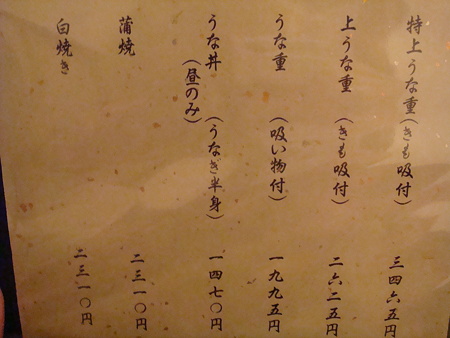 特上うな重（きも吸付） 三四六五円
上うな重（きも吸付） 二六二五円
うな重（吸い物付） 一九九五円
うな丼（うなぎ半身） 一四七〇円
（昼のみ）
蒲焼 二三一〇円
白焼き 二三一〇円